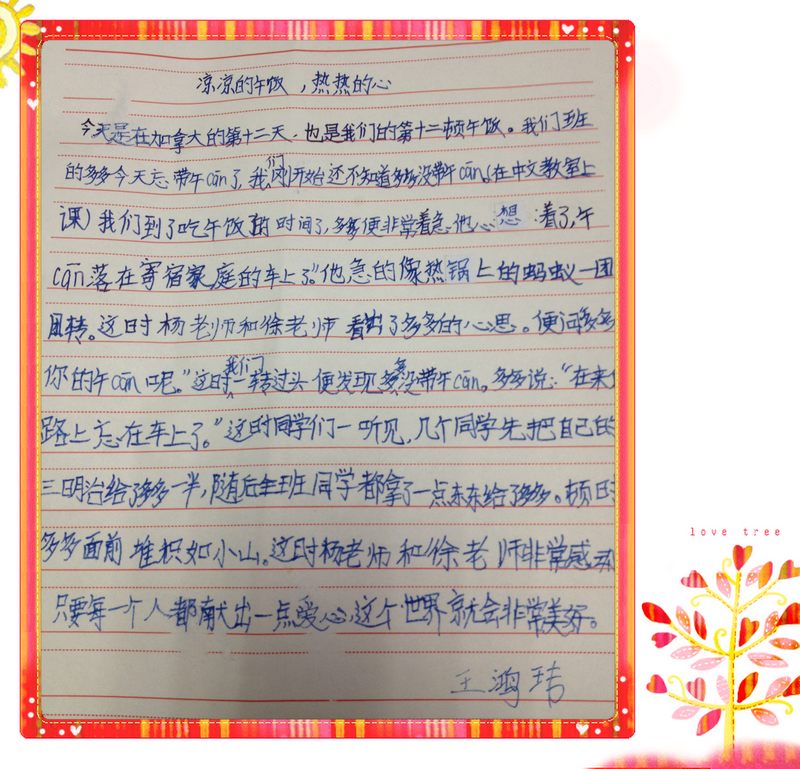 凉凉的午饭，热热的心
今天是在加拿大的第十二天，也是我们的第十二顿午饭。我们班
的多多今天忘带午cān了，我们刚开始还不知道多多没带午cān。(在中文教室上
课)我们到了吃午饭的时间了，多多便非常着急。他心想：着了，午
cān落在寄宿家庭的车上了。”他急的像热锅上的蚂蚁一团
团转。这时杨老师和徐老师看出了多多的心思。便问多多
你的午cān呢。”这时我们一转过头便发现多多没带午cān。多多说：“在来
路上忘在车上了。”这时同学们一听见，几个同学先把自己的
三明治给了多多一半，随后全班同学都拿了一点东东给了多多。顿时
多多面前堆积如小山。这时杨老师和徐老师非常感动
只要每一个人都献出一点爱心，这个世界就会非常美好。
王鸿玮
love tree